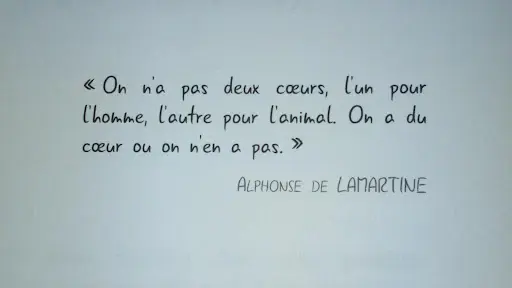 « On n'a pas deux cœurs, l'un pour
l'homme, l'autre pour l'animal. On a du
cœur ou on n'en a pas. »
ALPHONSE DE LAMARTINE